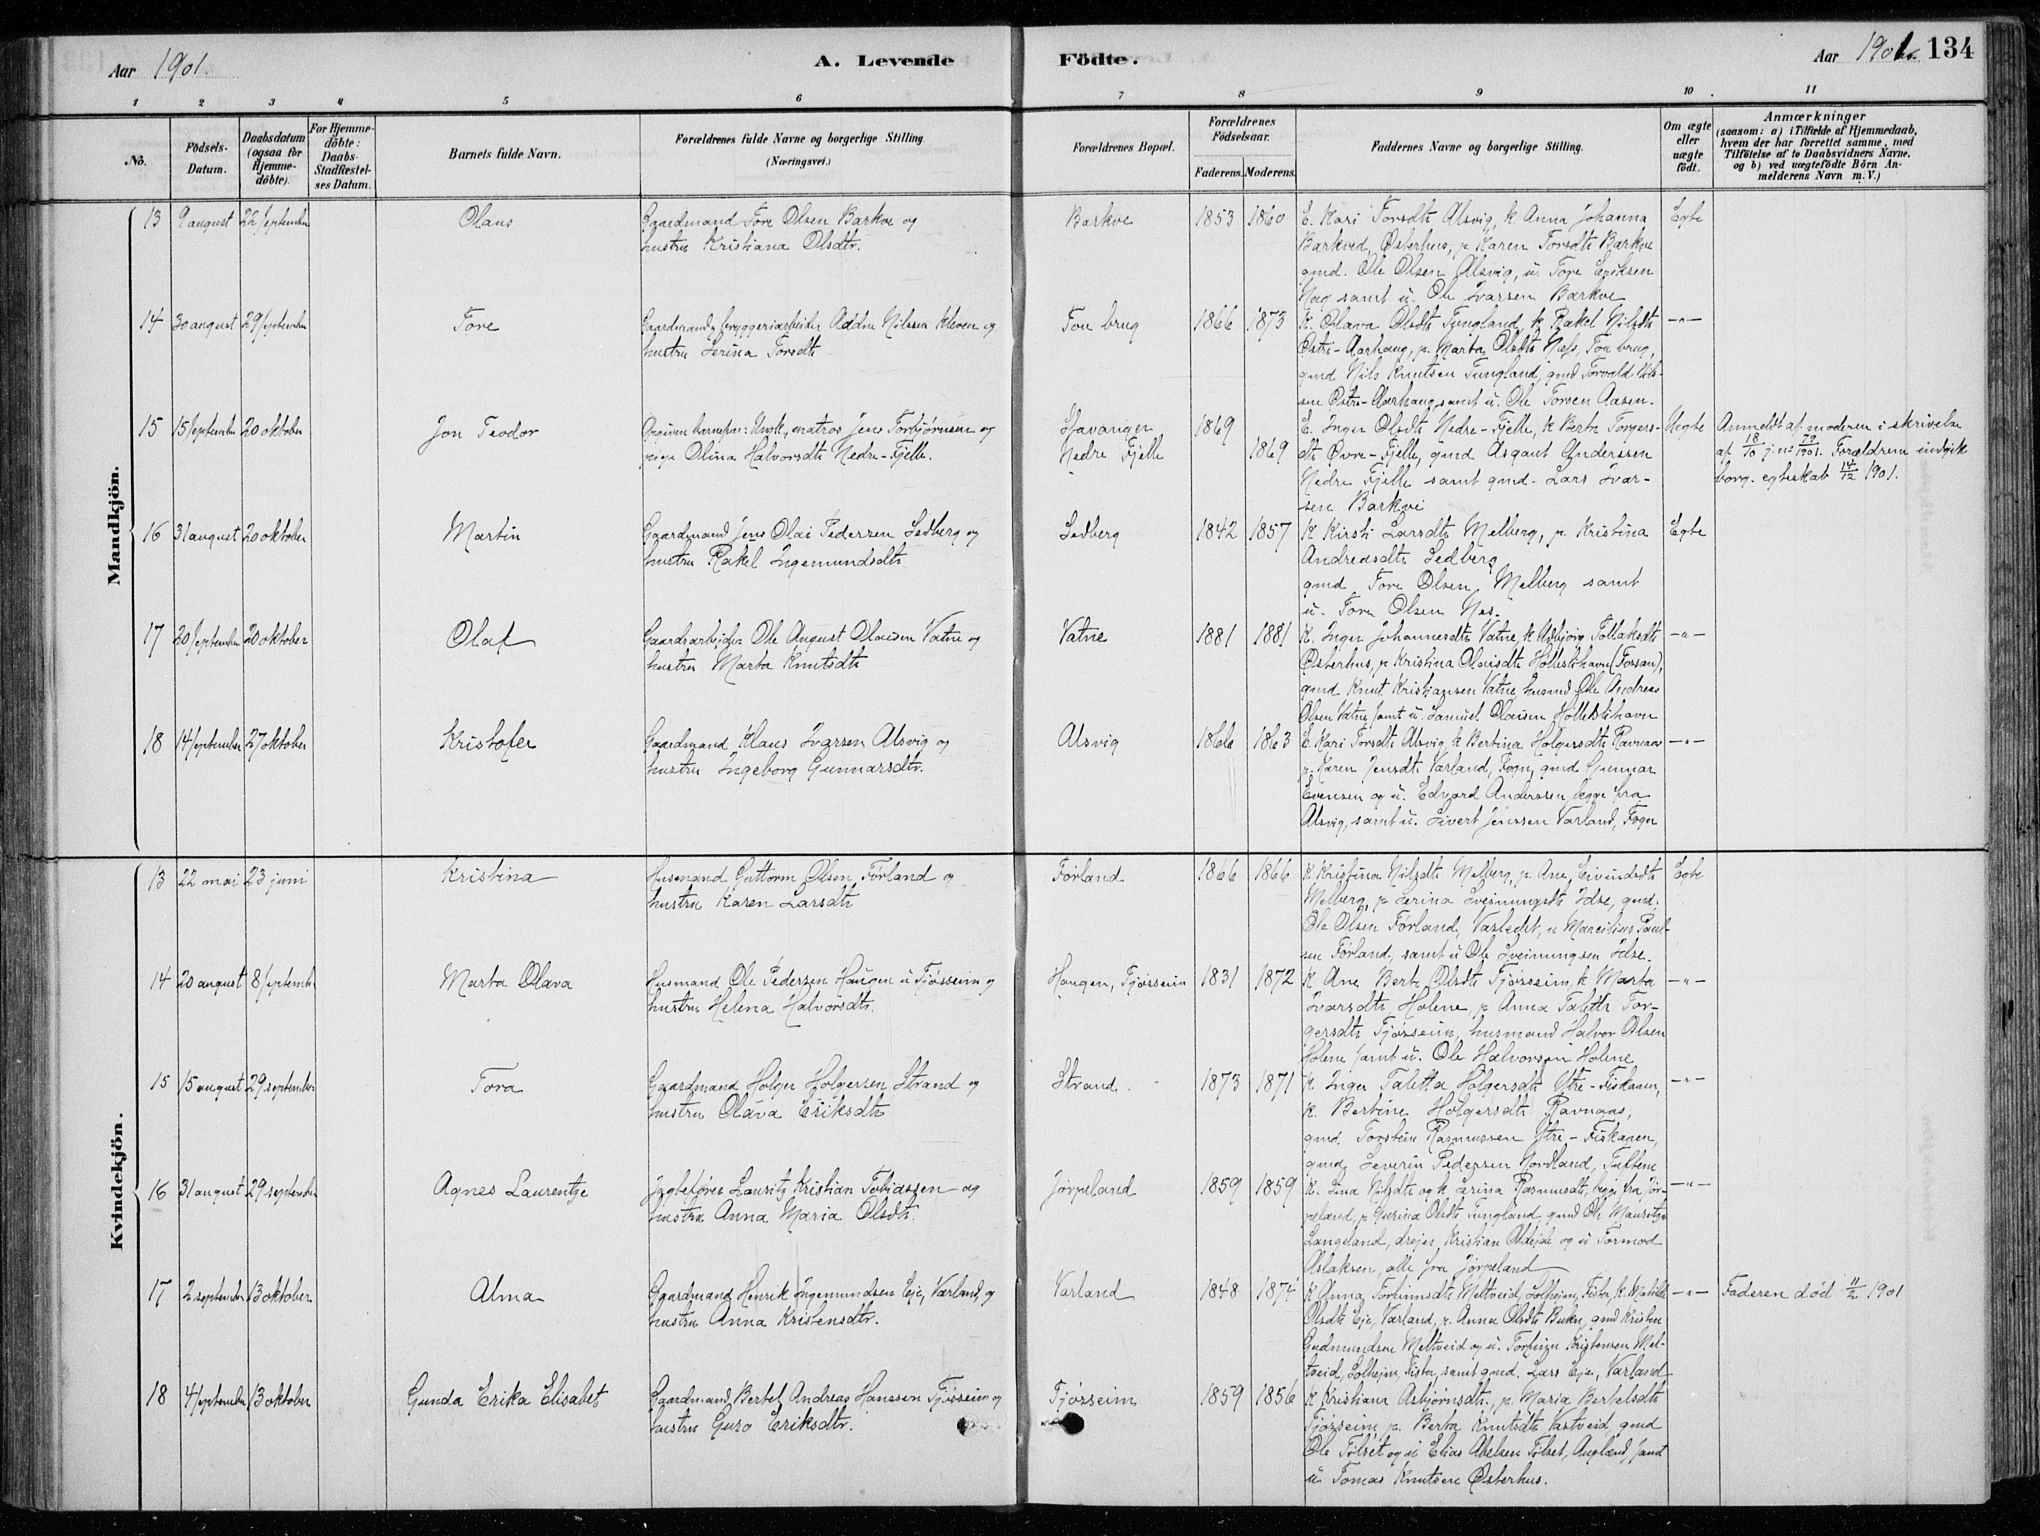 Aar 1901. A. Levende Födte. Aar 1901. 134
1 2 3 4 5 6 7 8 9 10 11
No.
Födsels-Datum.
Daabsdatum (ogsaa for Hjemmedöbte).
For Hjemmedöbte: Daabs-Stadfæstelses Datum.
Barnets fulde Navn.
Forældrenes fulde Navne og borgerlige Stilling (Næringsvei.)
Forældrenes Bopæl.
Forældrenes Födselsaar.
Faderens. Moderens.
Faddernes Navne og borgerlige Stilling.
Om ægte eller uægte födt.
Anmærkninger
(saasom: a) i Tilfælde af Hjemmedaab,
hvem der har forrettet samme, med
Tilföielse af to Daabsvidners Navne,
og b) ved uægtefödte Börn Anmelderens Navn m. V.)
Mandkjön.
13 9 august 22 september Olaus
Gaardmand Tore Olsen Barkve og
hustru Kristiana Olsdtr.
Barkve 1853 1860
E. Kari Torsdtr Alsvig, k Anna Johanna
Barkved, Østerhus, p. Karen Torsdtr Barkve
gmd. Ole Olsen Alsvig, u. Tore Eriksen
Nag samt u. Ole Ivarsen Barkve
Egte
14 30 august 29 september Tore
Gaardmand, bryggeriarbeider Adne Nilsen Kleven og
hustru Serina Torsdtr
Tou brug 1866 1873
K. Olava Olsdtr Tungland, k Rakel Nilsdtr
Østre-Aarhaug, p. Marta Olsdtr Ness, Tou brug,
gmd Nils Knutsen Tungland, gmd Torvald Nilssen Østre-Aarhaug samt u. Ole Torsen Aasen.
—"—
15 15 september 20 oktober Jon Teodor
Opgiven barnefar: Ungk., matros Jens Torbjørnsen og
pige Olina Halvorsdtr Nedre-Fjelle.
Stavanger 1869
Nedre Fjelle 1869
E. Inger Olsdtr Nedre-Fjelle, k Berta Torgersdtr Øvre-Fjelle, gmd Asgaut Gunderssen
Nedre Fjelle samt gmd. Lars Ivarsen Barkve
Uegte
Anmeldt af moderen i skrivelse
af 18/10 j. no 79/1901. Forældrene indgik
borg. egteskab 14/12 1901.
16 31 august 20 oktober Martin
Gaardmand Jens Olai Pedersen Sedberg og
hustru Rakel Ingemundsdtr
Sedberg 1842 1857
K Kirsti Larsdtr Melberg, p. Kristina
Andreasdtr Sedberg
gmd Tore Olsen Melberg samt
u. Tore Olsen Nes.
Egte
17 20 september 20 oktober Olaf
Gaardsarbejder Ole August Olausen Vatne og
hustru Marta Knutsdtr
Vatne 1881 1881
K. Inger Johannesdtr Vatne, k Udbjørg Tollaksdtr
Østerhus, p Kristina Olaisdtr Höllesli havn (Forsan),
gmd Knut Kristiansen Vatne, husmd Ole Andreas
Olsen Vatne samt u. Samuel Olausen Höllesli havn
—"—
18 14 september 27 oktober Kristofer
Gaardmand Klaus Ivarsen Alsvig og
hustru Ingeborg Gunnarsdtr.
Alsvig 1866 1863
E. Kari Torsdtr Alsvig k Bertina Holgersdtr Ravnaas
p. Karen Jensdtr Varland, Fogn, gmd Gunnar
Evensen og u. Edvard Anderssen begge fra
Alsvig, samt u. Sivert Jenssen Varland, Fogn
—"—
Kvindekjön.
13 22 mai 23 juni Kristina
Husmand Guttorm Olsen Førland og
hustru Karen Larsdtr
Førland 1866 1866
K Kristina Nilsdtr Melberg, p. Ane Eivindsdtr
Melberg, p Serina Sveinungsdtr Idse, gmd.
Ole Olsen Førland, u Marcilius Paulsen Førland, samt u Ole Sveinungsen Idse.
Egte
14 20 august 8 september Marta Olava
Husmand Ole Pedersen Haugen u Tjøsseim og
hustru Helena Halvorsdtr.
Haugen, Tjøsseim 1831 1872
K Ane Berta Olsdtr Tjøsseim, k Marta
Ivarsdtr Holene, p Anna Taletta Torgersdtr Tjøsseim, husmand Halvor Olsen
Holene samt u. Ole Halvorsen Holene
—"—
15 15 august 29 september Tora
Gaardmand Holger Holgersen Strand og
hustru Olava Eriksdtr
Strand. 1873 1871
K Inger Taletta Holgersdtr Ytre-Fiskaaen,
k. Bertine Holgersdtr Ravnaas,
gmd Torstein Rasmussen Ytre-Fiskaaen,
gmd Severin Pedersen Nordland, Tuftene
—"—
16 31 august 29 september Agnes Laurentze
Jagtefører Lauritz Kristian Tobiassen og
hustru Anna Maria Olsdtr.
Jørpeland 1859 1859
K. Ina Nilsdtr og k Serina Rasmusdtr, begge fra Jørpeland, p Gurina Olsdtr Tungland, gmd Ole Mauritzen
Langeland, drejer Kristian og u Tormod
Aslaksen, alle fra Jørpeland
—"—
17 2 september 13 oktober Alma
Gaardmand Henrik Ingemundsen Eje, Varland, og
hustru Anna Kristensdtr.
Varland 1848 1874
K Anna Torfinnsdtr Meltveid, Solheim, Fister, k. Matilde
Olsdtr Eje, Varland, p. Anna Olsdtr Bukn, gmd Kristen
Gudmundsen Meltveid og u. Torfinn Kristensen Meltveid, Solheim, Fister, samt gmd. Lars Eje, Varland
—"—
Faderen död 11/2 1901
18 4 september 13 oktober Gunda Erika Elisabet
Gaardmand Bertel Andreas Hanssen Tjøsseim og
hustru Guro Eriksdtr.
Tjøsseim 1859 1856
K Kristiana Asbjørnsdtr., p. Maria Bertelsdtr
Tjøsseim, p. Berta Knutsdtr Vastveid, gmd
Ole Tølset og u Elias Abelsen Tølset, Aagland, samt
u. Tomas Knutsen Østerhus.